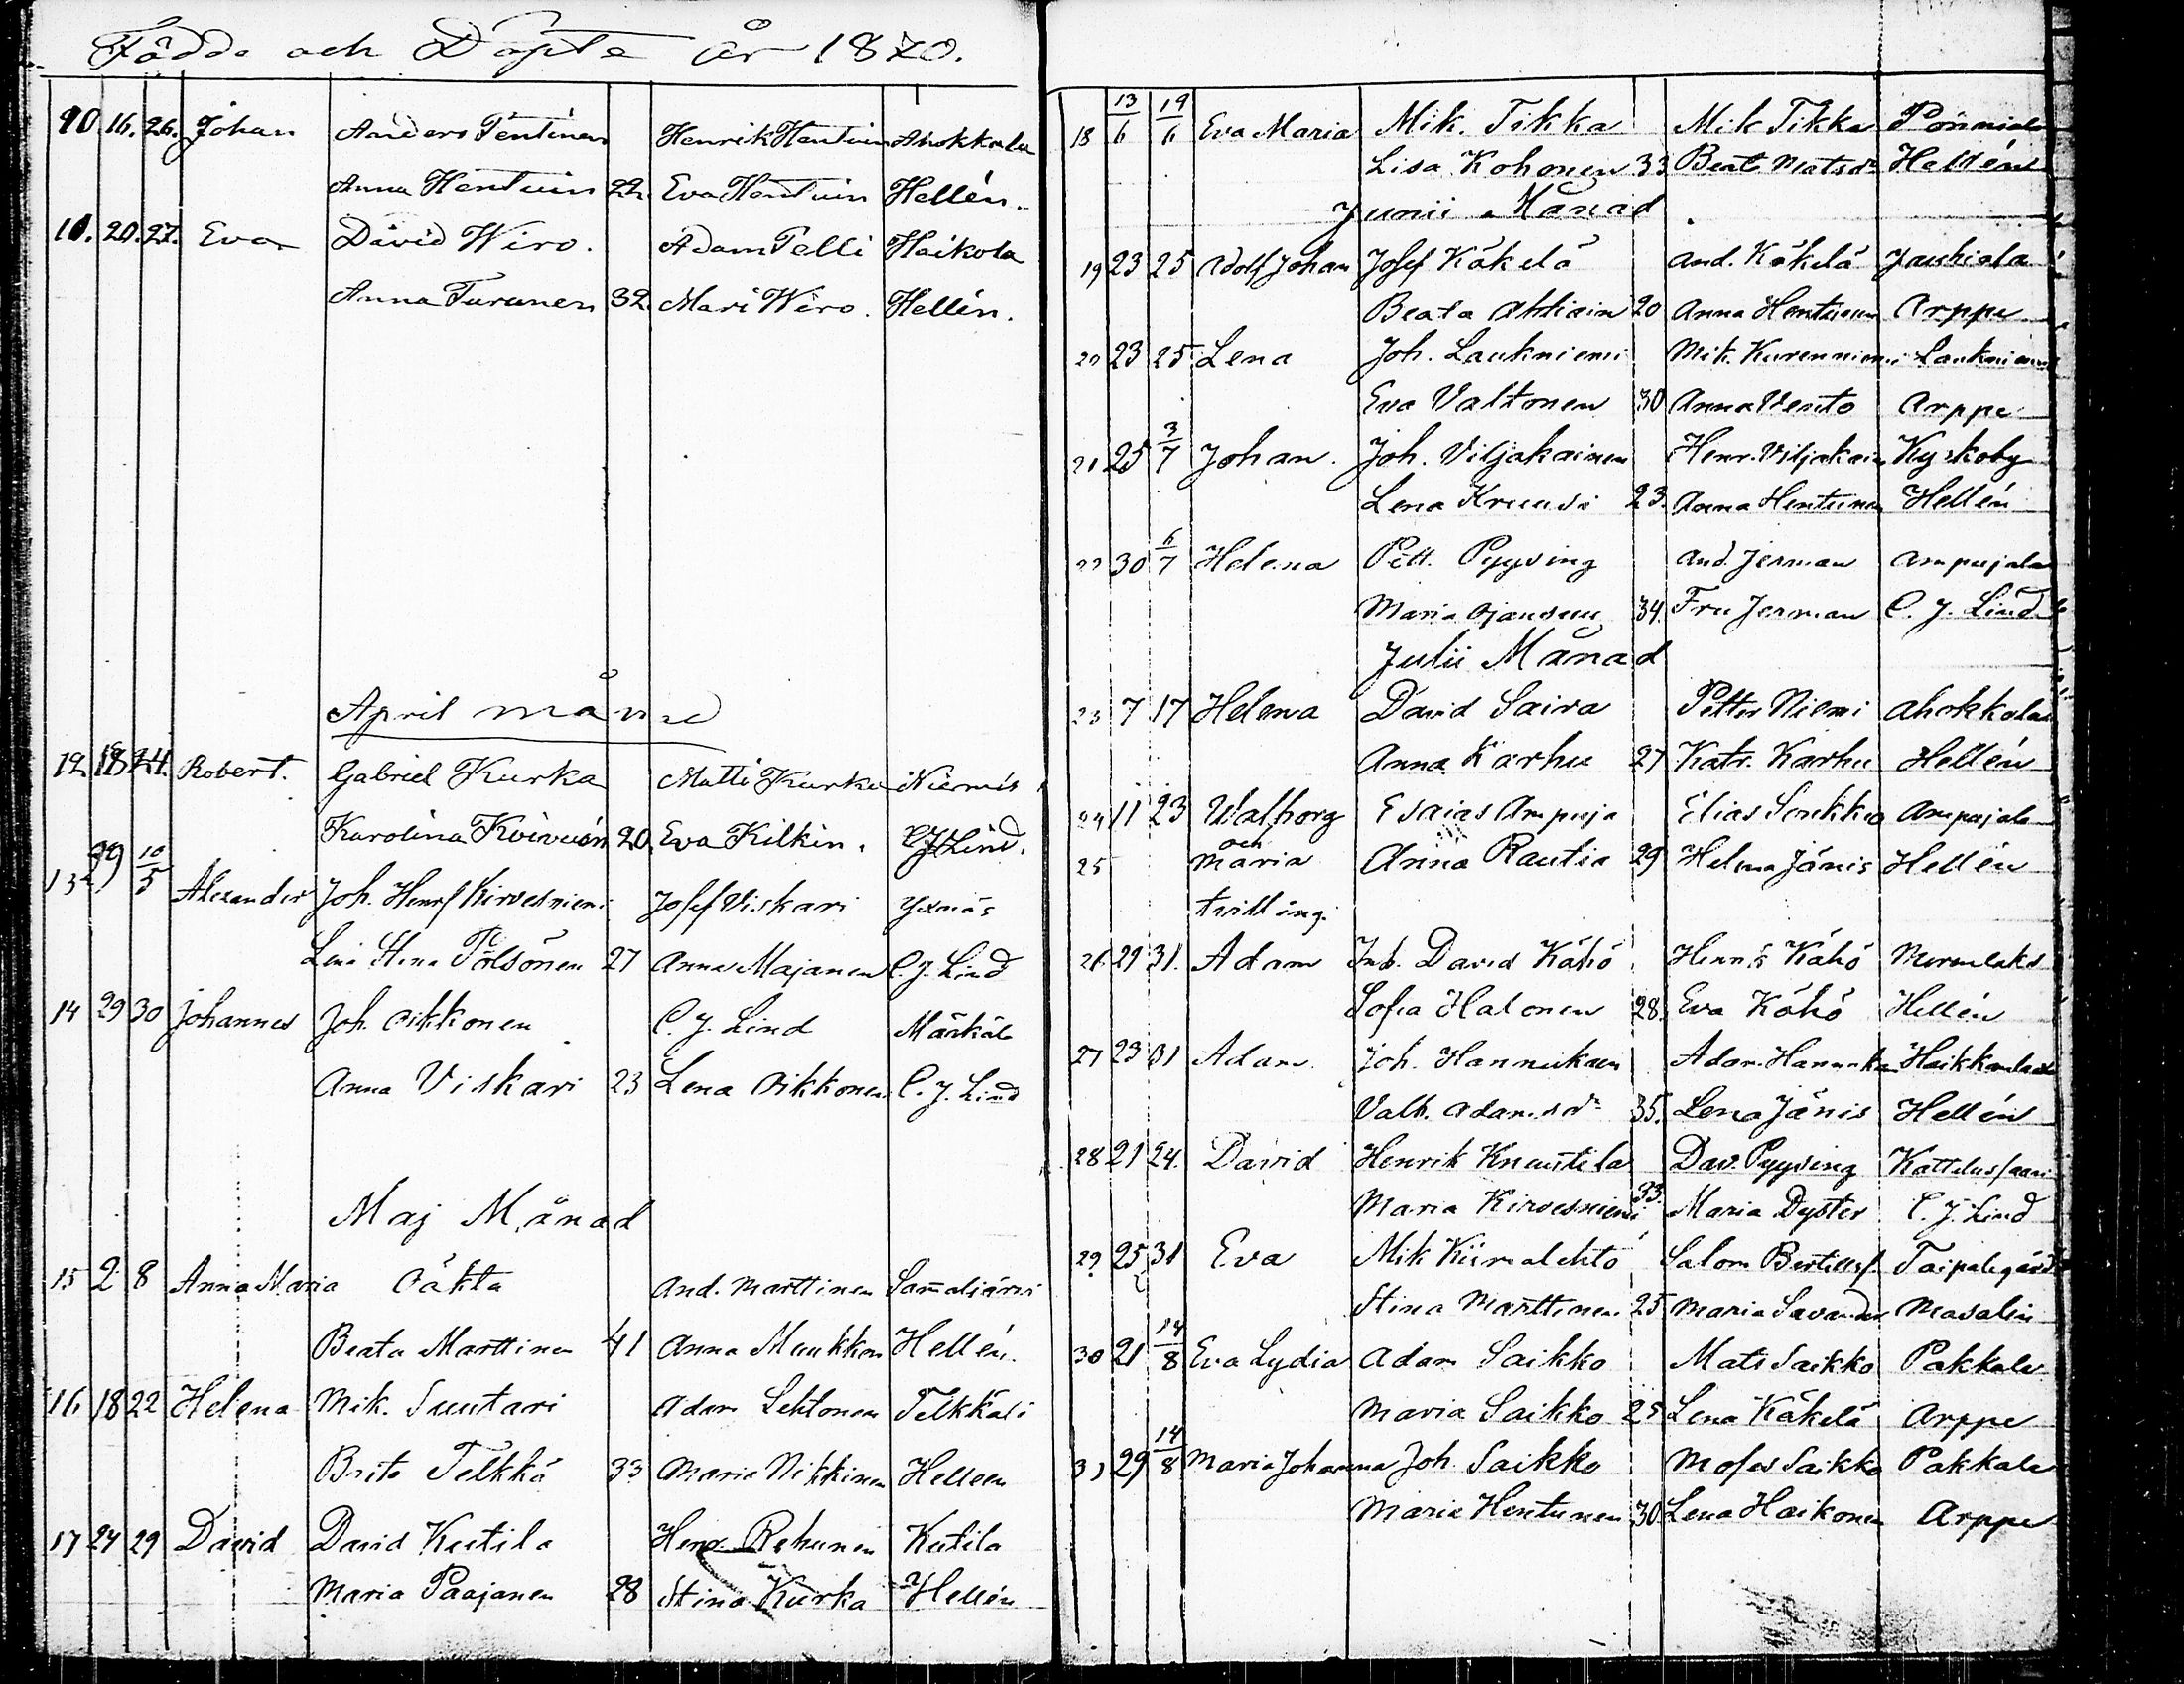 Födda och Döpte år 1870.
10 16. 26. Johan Anders Tentinen Henrik Hentuin Ahokkala
Anna Hentuin 22. Eva Hentuin Hellén.
10. 20. 27. Eva David Wiro. Adam Telli Haikola
Anna Turunen 32. Mari Wiro. Hellén.
April månad
12 18 24. Robert. Gabriel Kurka Matti Kurka Niemis
Karolina Koivuin 20. Eva Kilkin. CJ Lind.
13 29 10/5 Alexander Joh. Henr Kirvesniemi Josef Viskari
Lena Stina Pölsönen 27 Anna Majanen C. J. Lind
14 29 30 Johannes Joh. Oikkonen C. J. Lind Märkälä
Anna Viskari 23 Lena Oikkonen C. J. Lind
Maj Månad
15 2 8 Anna Maria Oäkta And. Marttinen Sam̄aljärvi
Beata Marttinen 41 Anna Muukkon Hellén.
16 18 22 Helena Mik. Suutari Adam Lehtonen Telkkäli
Brita Telkkä 33 Maria Nikkinen Helleen
17 24 29 David David Kutila Henr Rehunen Kutila
Maria Paajanen 28 Stina Kurka Hellén
18 13/6 19/6 Eva Maria Mik. Tikka Mik Tikka Pönniälä
Lisa Kohonen 33 Beata Matsdr Hellén
Junii Månad
19 23 25 Adolf Johan Josef Käkelä And. Käkelä Jauhiala
Beata Ahtiain 20 Anna Hentunen Arppe
20 23 25 Lena Joh. Laukniemi Mik. Kurenniemi Laukniemi
Eva Valtonen 30 Anna Vento Arppe
21 25 3/7 Johan. Joh. Viljakainen Henr. Viljakain Kyrkoby
Lena Kruusi 23. Anna Hentunen Hellén
22 30 6/7 Helena Pett. Pyysing And. Jerman Ampujala
Maria Ojansuu 34. Fru Jerman C. J. Lind
Julii Månad
23 7 17 Helena David Saira Petter Niemi Ahokkala
Anna Karhu 27 Katr. Karhu Hellén
24 11 23 Walborg Esaias Ampuja Elias Sorkko Ampujala
och
25 Maria Anna Rautia 29 Helena Jänis Hellén
tvilling.
26 29 31. Adam Inh. David Kähö Henrs Kähö Merenlaks
Sofia Halonen 28. Eva Kähö Hellén
27 23 31 Adam Joh. Hannukain Adam Hannukain
Valb. Adamsdr 35. Lena Jänis Hellén
28 21 24. David Henrik Knuutila Dav. Pyysing Kattelussaari
Maria Kirvesniemi 33. Maria Dyster C. J. Lind
29 25 31 Eva Mik Kiimalehto Salom Bertills. Taipalegård
Stina Marttinen 25 Maria Savander Masalin
30 21 14/8 Eva Lydia Adam Saikko Mats Saikko Pakkala
Maria Saikko 25 Lena Käkelä Arppe
31 29 14/8 Maria Johanna Joh. Saikko Moses Saikko Pakkala
Maria Hentunen 30 Lena Haikonen Arppe